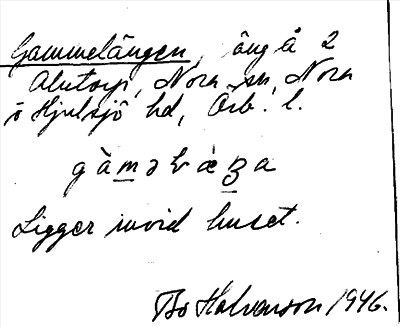 Gammelängen, äng å 2
Alntorp, Nora sn, Nora
o Hjulsjö hd, Örb. l.
Ligger invid huset.
Bo Halvenson 1946.